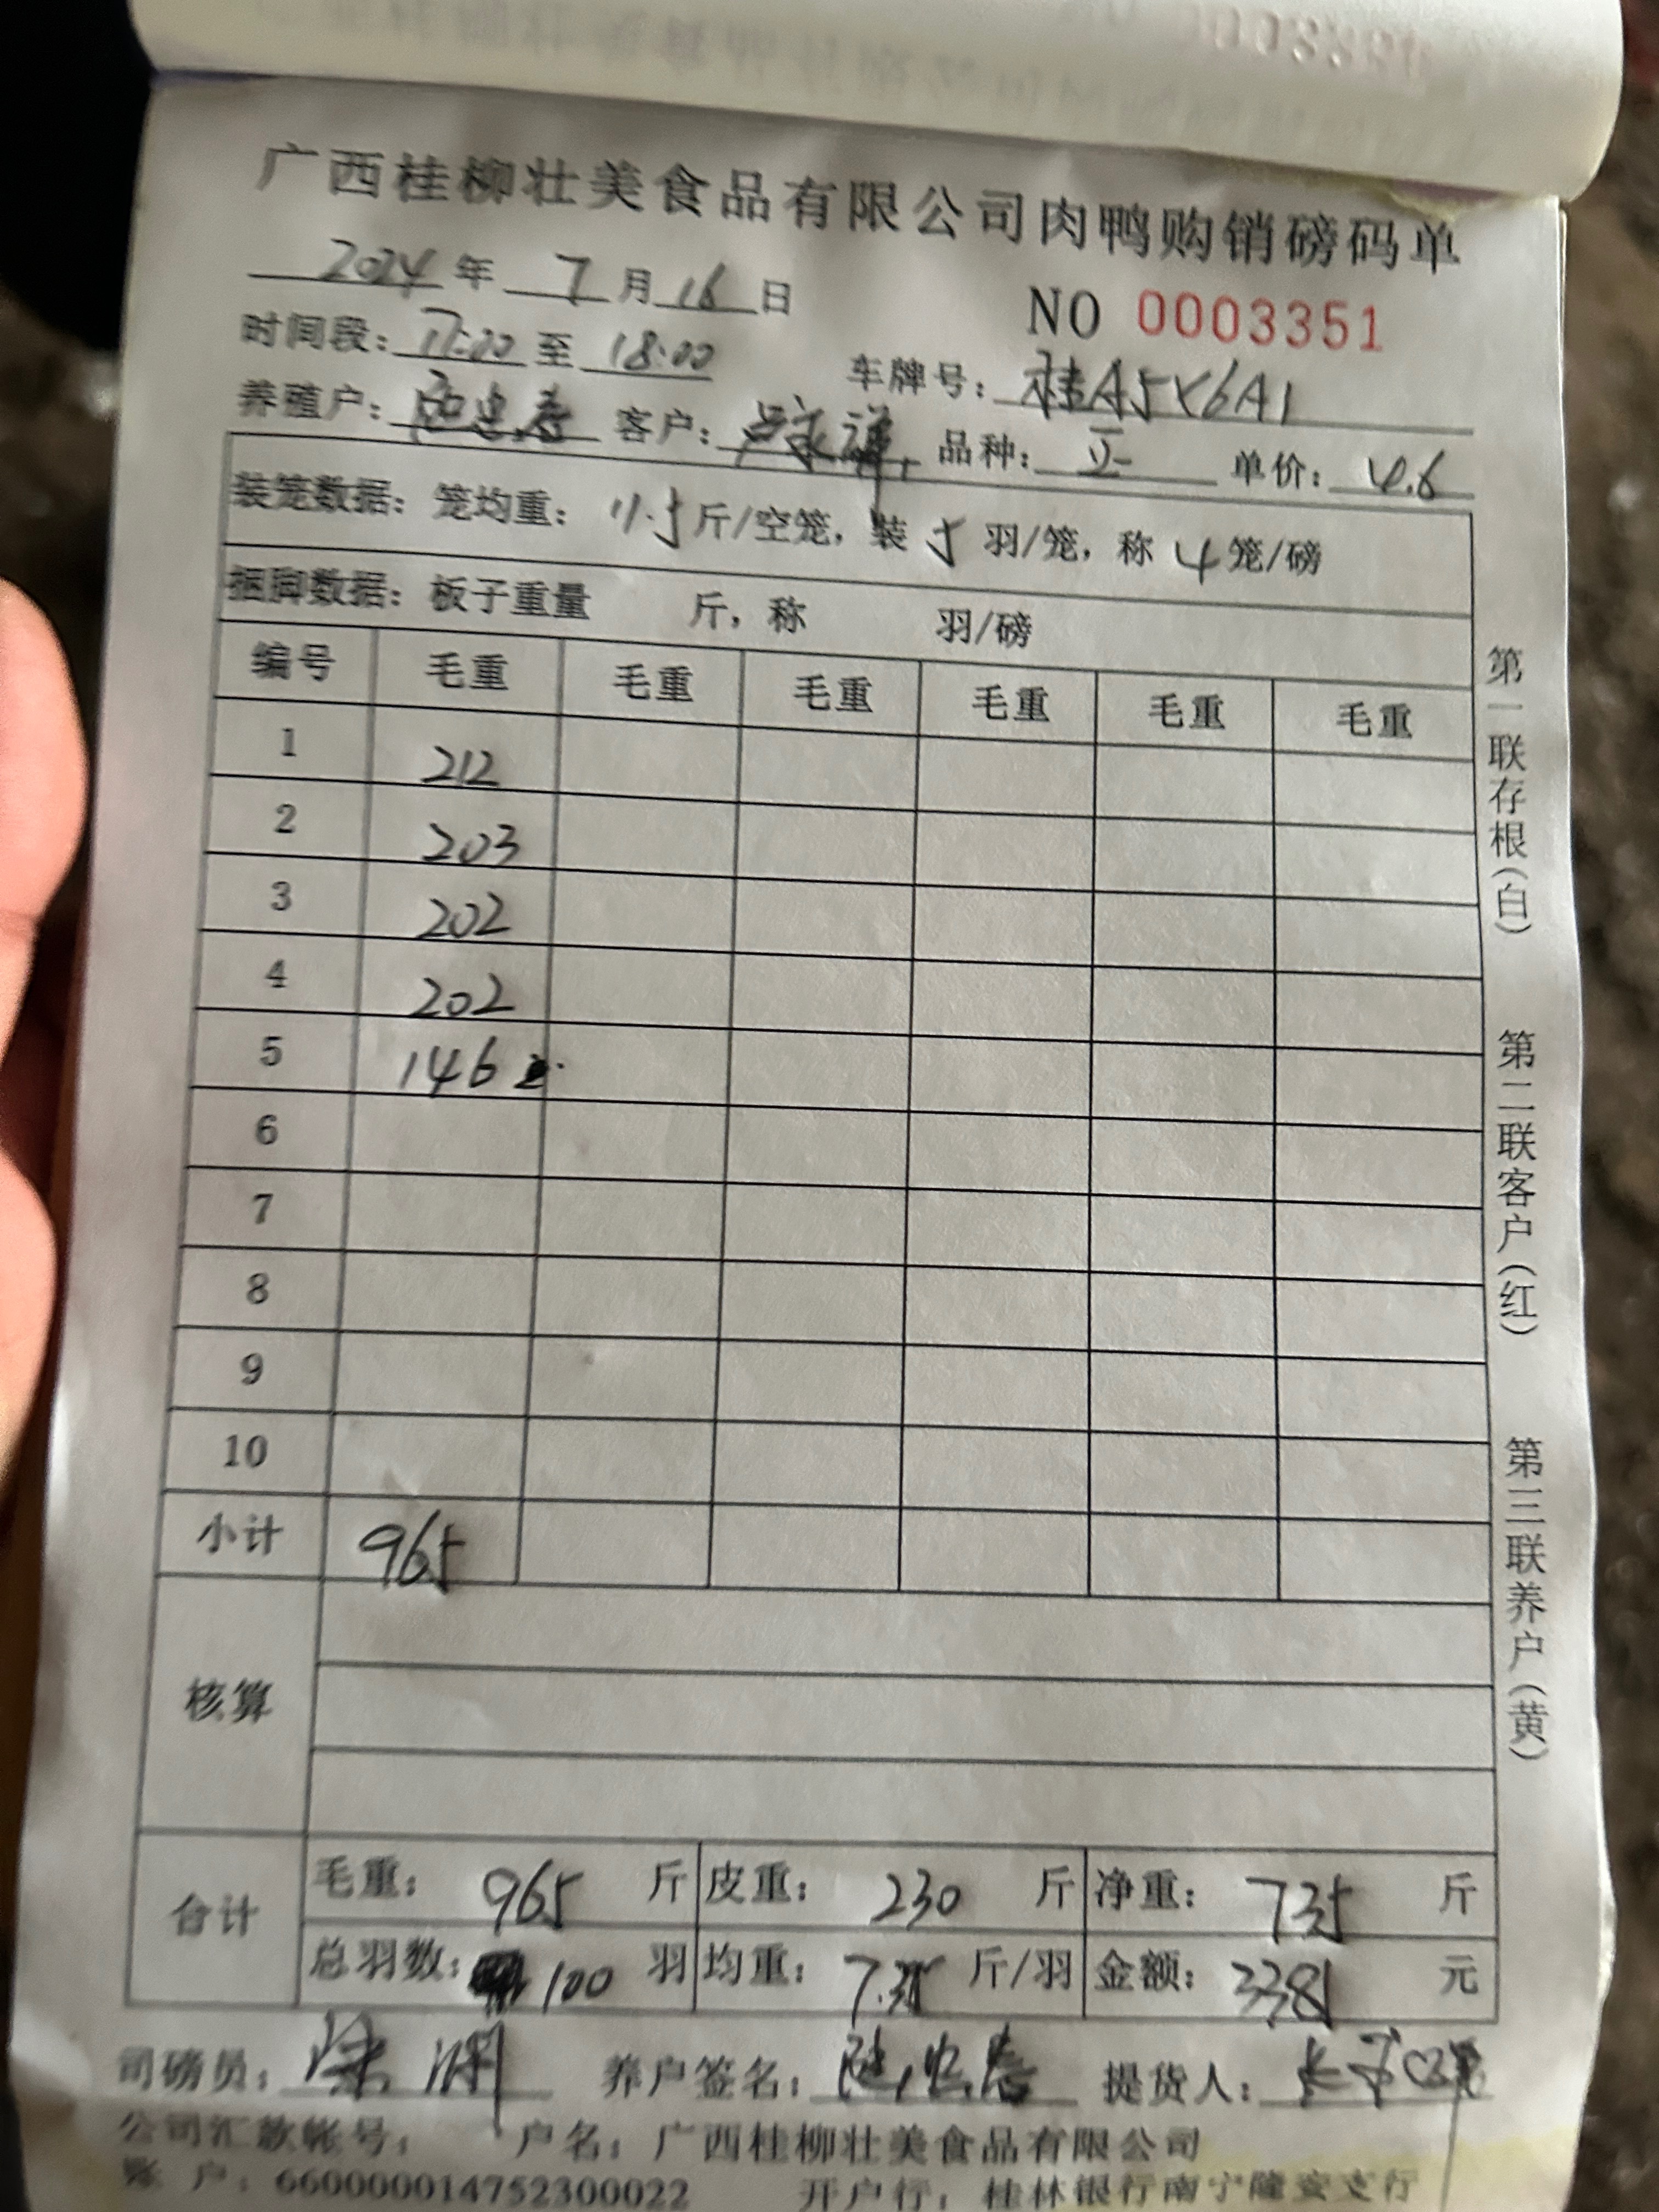 广西桂柳壮美食品有限公司肉鸭购销磅码单
2024年7月16日
NO 0003351
时间段：17:00至18:00
车牌号：桂A5Y6A1
养殖户： 客户： 品种： 单价：4.6
装笼数据：笼均重：11.5斤/空笼，装5羽/笼，称4笼/磅
捆脚数据：板子重量 斤，称 羽/磅
编号 毛重 毛重 毛重 毛重 毛重 毛重
1 212
2 203
3 202
4 202
5 146
6
7
8
9
10
小计 965
核算
合计 毛重：965斤 皮重：230斤 净重：735斤
总羽数：100羽 均重：7.35斤/羽 金额：3381元
司磅员： 养户签名： 提货人：
公司汇款帐号： 户名：广西桂柳壮美食品有限公司
账 户：660000014752300022 开户行：桂林银行南宁隆安支行
第一联存根（白） 第二联客户（红） 第三联养户（黄）